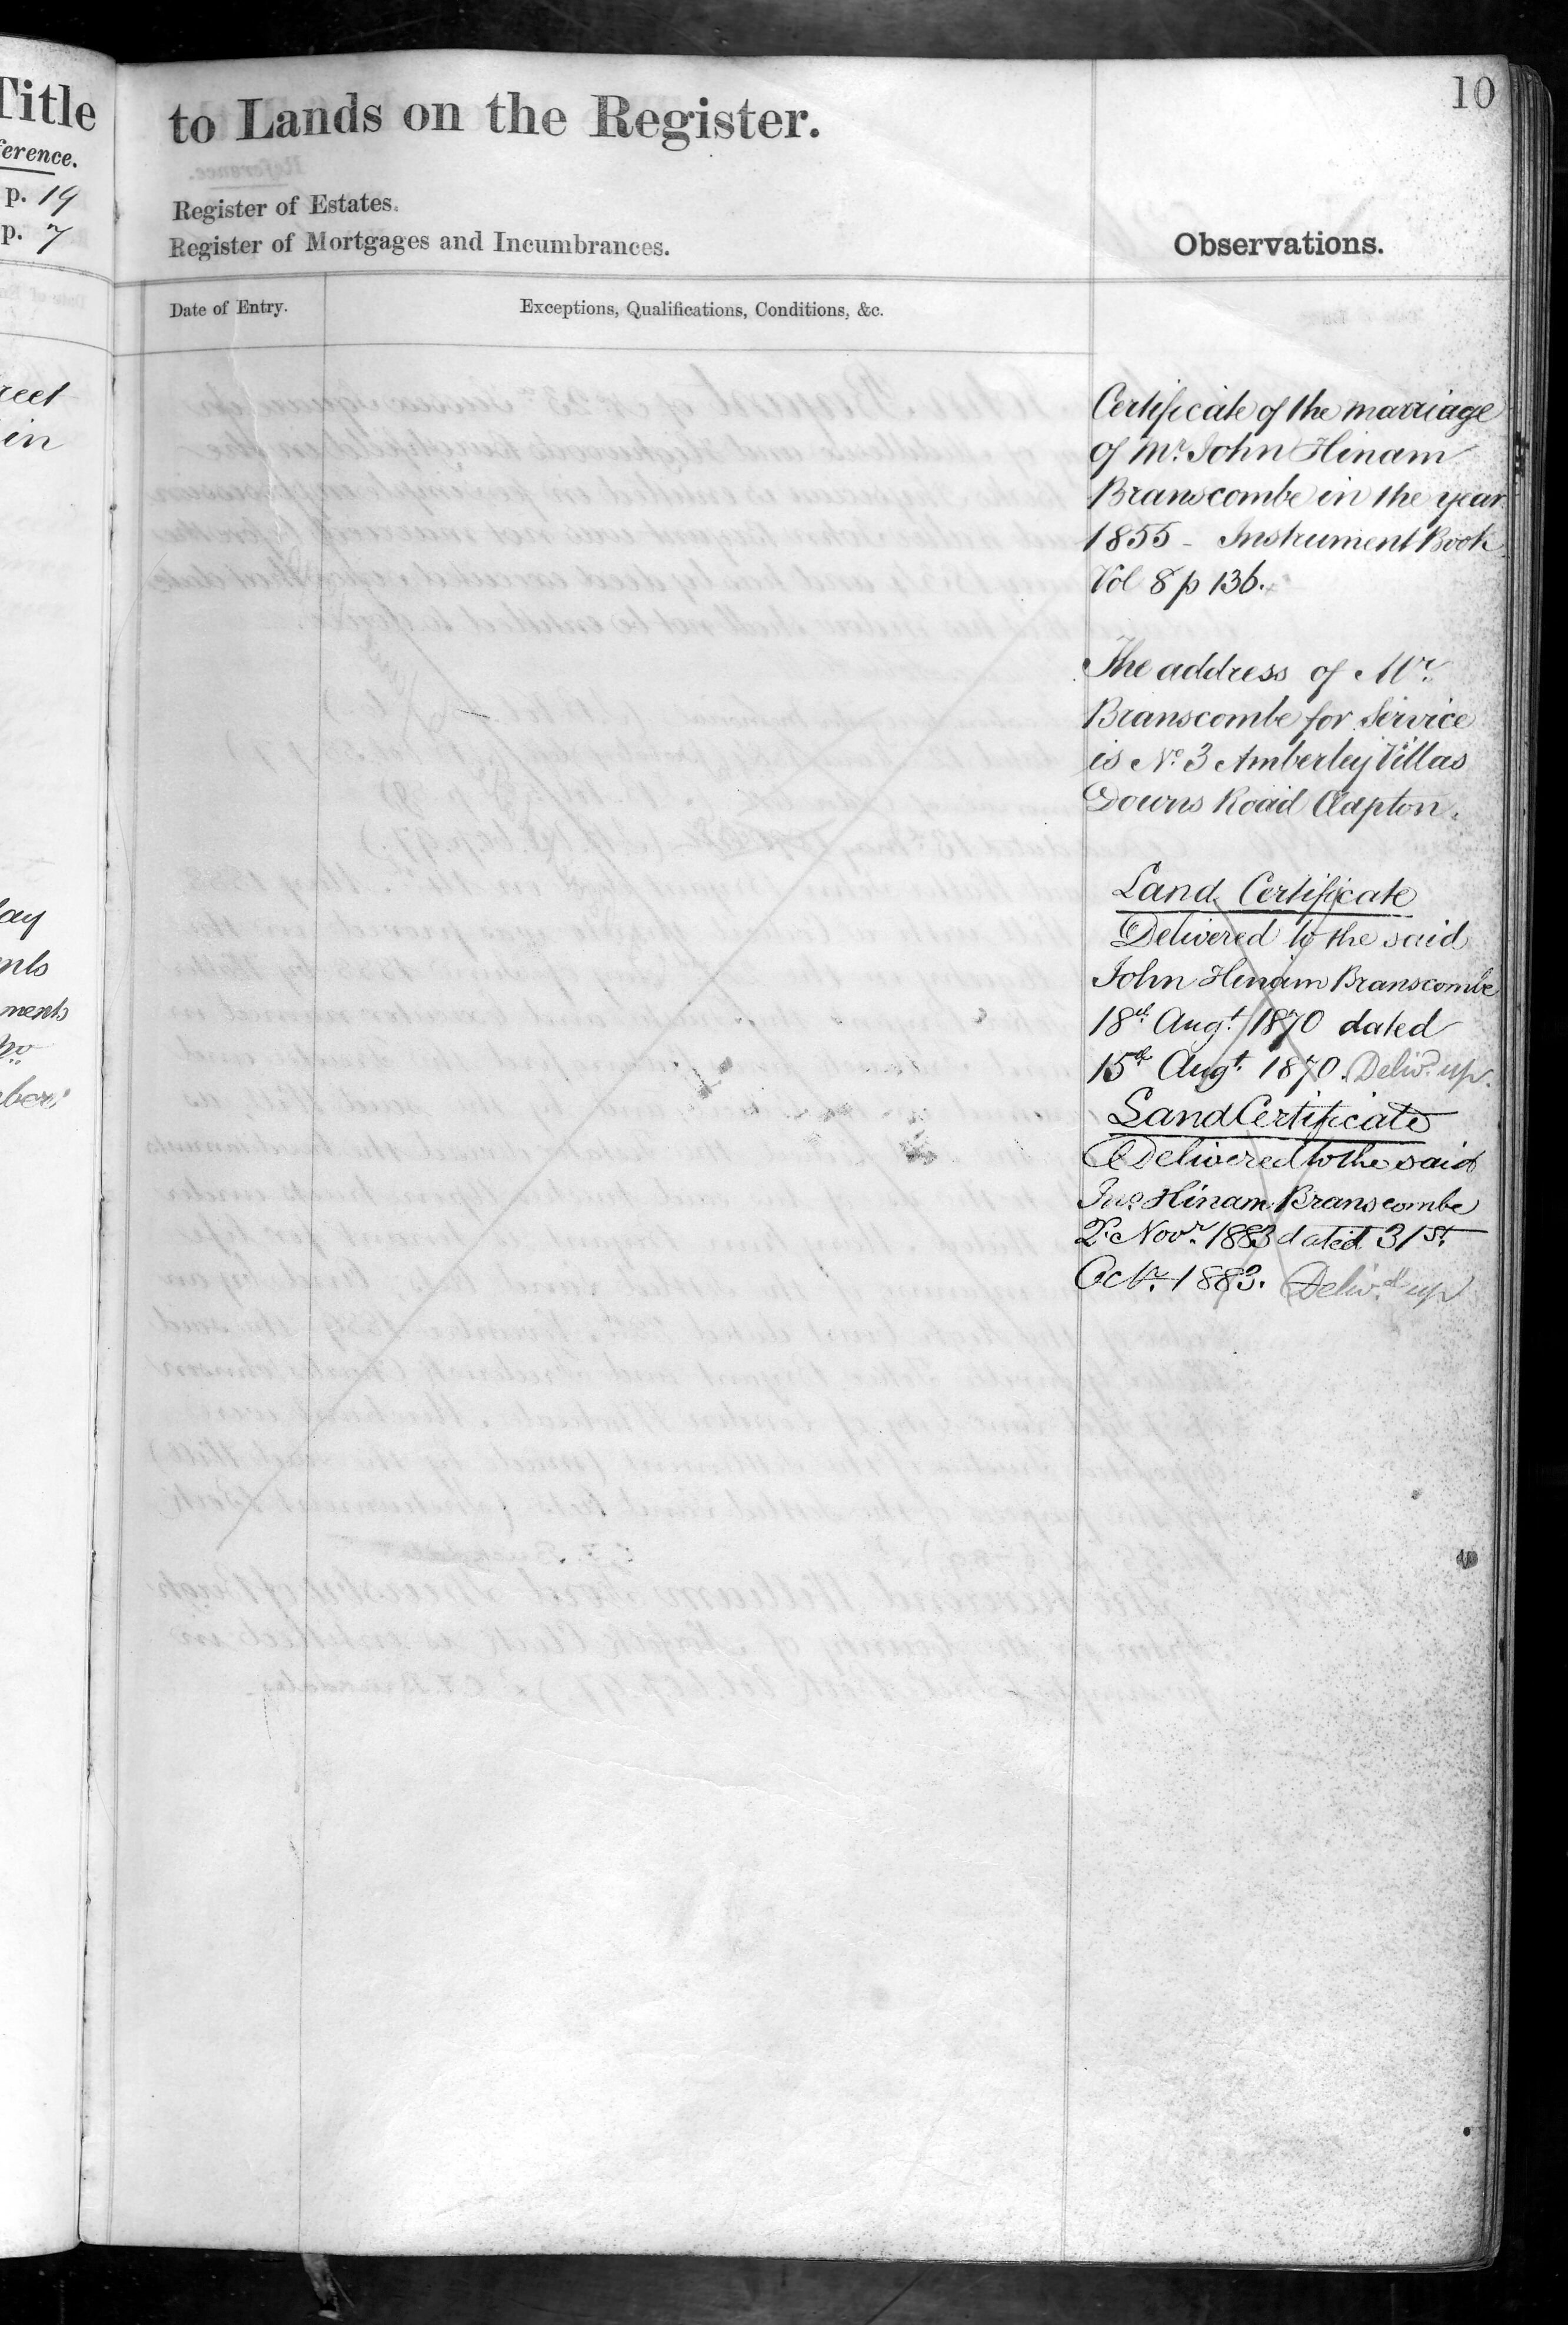 Title
erence.
p. 19
p. 7
reet
in
lay
nts
ments
bers
10
to Lands on the Register.
Register of Estates.
Register of Mortgages and Incumbrances.
Observations.
Date of Entry.
Exceptions, Qualifications, Conditions, &c.
Certificate of the marriage
of Mr. John Hinam
Branscombe in the year
1855 - Instrument Book
Vol 8 p 136.
The address of Mr.
Branscombe for Service
is No. 3 Amberley Villas
Downs Road Clapton.
Land Certificate
Delivered to the said
John Hinam Branscombe
18th Augt. 1870 dated
15th Augt. 1870. Delivd. up.
Land Certificate
Delivered to the said
Jno. Hinam Branscombe
2 Novr. 1883 dated 31st.
Octr. 1883. Delivd. up